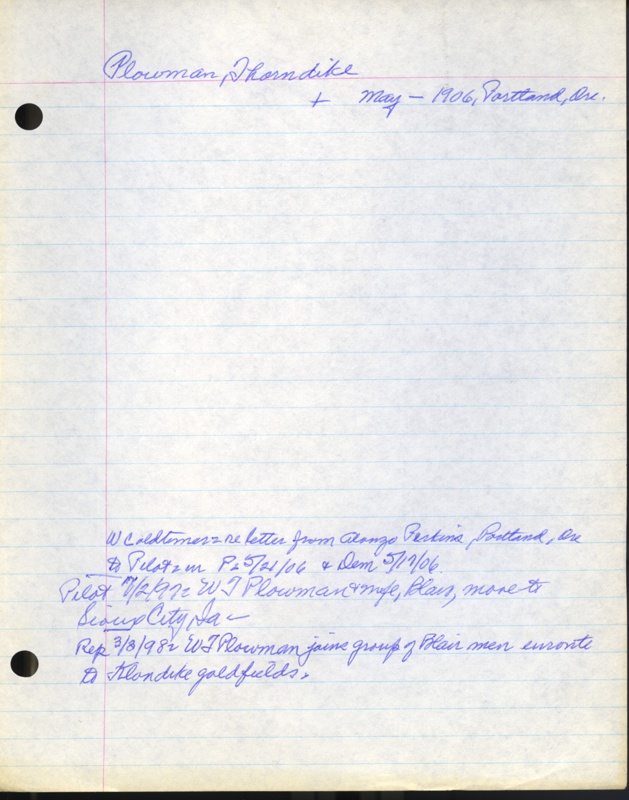 Plowman, Thorndike
+ May – 1906, Portland, Ore.
W C oldtimers re letter from Alonzo Perkins, Portland, Ore
to Pilot in P 5/21/06 & Dem 5/17/06
Pilot 7/2/97 W T Plowman & wife, Blair, move to
Sioux City, Ia
Rep 3/3/98 W T Plowman joins group of Blair men enroute
to Klondike goldfields.